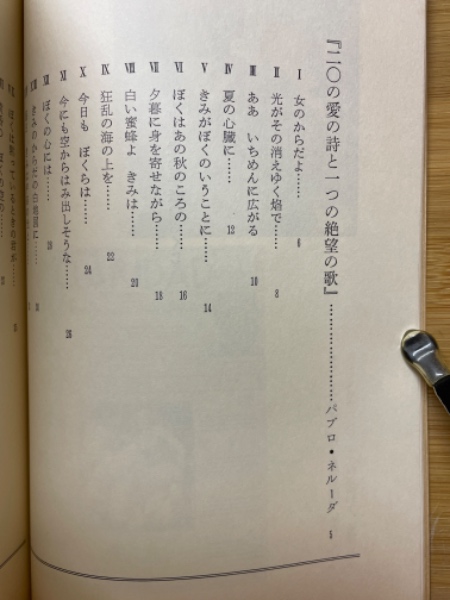 『二〇の愛の詩と一つの絶望の歌』…………………パブロ・ネルーダ 5
I 女のからだよ…… 6
II 光がその消えゆく焰で…… 8
III ああ いちめんに広がる 10
IV 夏の心臓に…… 12
V きみがぼくのいうことに…… 14
VI ぼくはあの秋のころの…… 16
VII 夕暮に身を寄せながら…… 18
VIII 白い蜜蜂よ きみは…… 20
IX 狂乱の海の上を…… 22
X 今日も ぼくらは…… 24
XI 今にも空からはみ出しそうな…… 26
XII ぼくの心には…… 28
XIII きみのからだの白地図に……